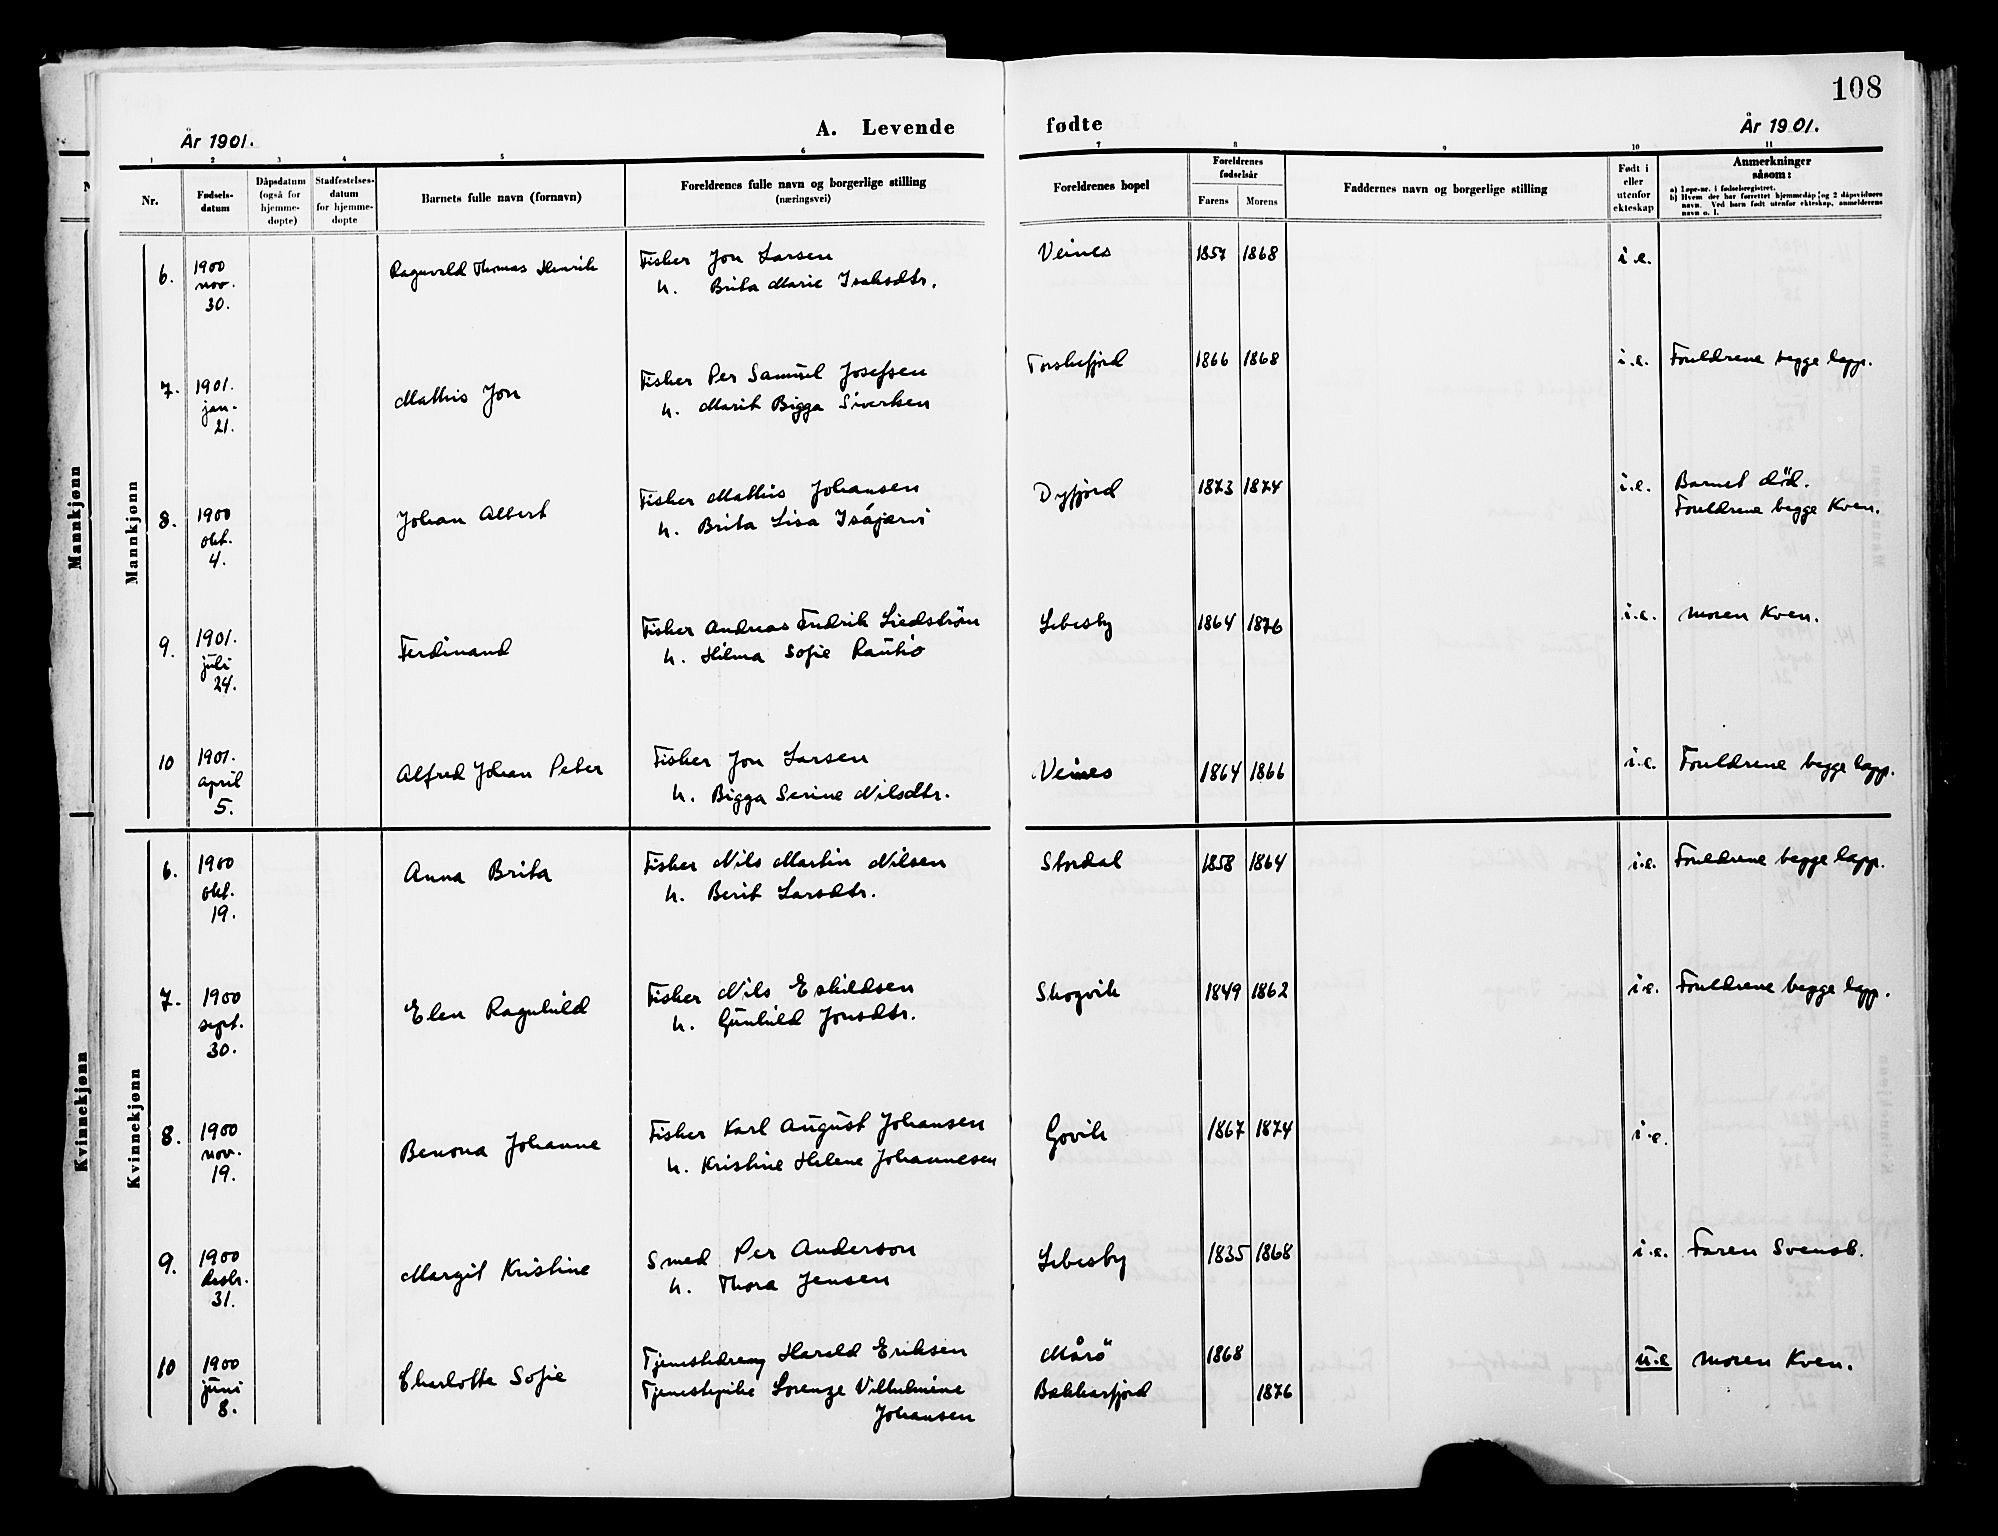 108
År 1901.
A. Levende fødte
År 1901.
1 2 3 4 5 6 7 8 9 10 11
Nr.
Fødsels-
datum
Dåpsdatum
(også for
hjemme-
døpte)
Stadfestelses-
datum
for hjemme-
døpte
Barnets fulle navn (fornavn)
Foreldrenes fulle navn og borgerlige stilling
(næringsvei)
Foreldrenes bopel
Foreldrenes
fødselsår
Farens Morens
Faddernes navn og borgerlige stilling
Født i
eller
utenfor
ekteskap
Anmerkninger
såsom:
a) Løpe-nr. i fødselsregistret.
b) Hvem der har forrettet hjemmedåp og 2 dåpsvidners
navn. Ved barn født utenfor ekteskap, anmelderens
navn o. l.
Mannkjønn
Mannkjønn
6. 1900 nov. 30. Ragnvald Thomas Henrik
Fisker Jon Larsen
h. Brita Marie Isaksdtr.
Veines 1857 1868 i.e.
7. 1901. jan. 21. Mathis Jon
Fisker Per Samuel Josefsen
h. Marit Bigga Sivertsen
Torskefjord 1866 1868 i.e. Foreldrene begge lapp.
8. 1900 okt. 4. Johan Albert
Fisker Mathis Johansen
h. Brita Lisa Isäjärvi
Dyfjord 1873 1874 i.e. Barnet död.
Foreldrene begge Kven.
9. 1901. juli 24. Ferdinand
Fisker Andreas Fredrik Liedström
h. Hilma Sofie Rautio
Lebesby 1864 1876 i.e. Moren Kven.
10 1901. april 5. Alfred Johan Peter
Fisker Jon Larsen
h. Bigga Serine Nilsdtr.
Veines 1864 1866 i.e. Foreldrene begge lapp.
Kvinnekjønn
Kvinnekjønn
6. 1900 okt. 19. Anna Brita
Fisker Nils Martin Nilsen
h. Berit Larsdtr.
Stordal 1858 1864 i.e. Foreldrene begge lapp.
7. 1900 sept. 30. Elen Ragnhild
Fisker Nils Eskildsen
h. Gunhild Jonsdtr.
Skogvik 1849 1862 i.e. Foreldrene begge lapp.
8. 1900 nov. 19. Benona Johanne
Fisker Karl August Johansen
h. Kristine Helene Johannesen
Govik 1867 1874 i.e.
9. 1900 desbr. 31. Margit Kristine
Smed Per Anderson
h. Thora Jensen
Lebesby 1835 1868 i.e. Faren Svensk.
10 1900 juni 8. Charlotte Sofie
Tjenestedreng Harald Eriksen
Tjenestepike Lorenze Vilhelmine
Johansen
Mårö 1868 u.e Moren Kven.
Bekkarfjord 1876